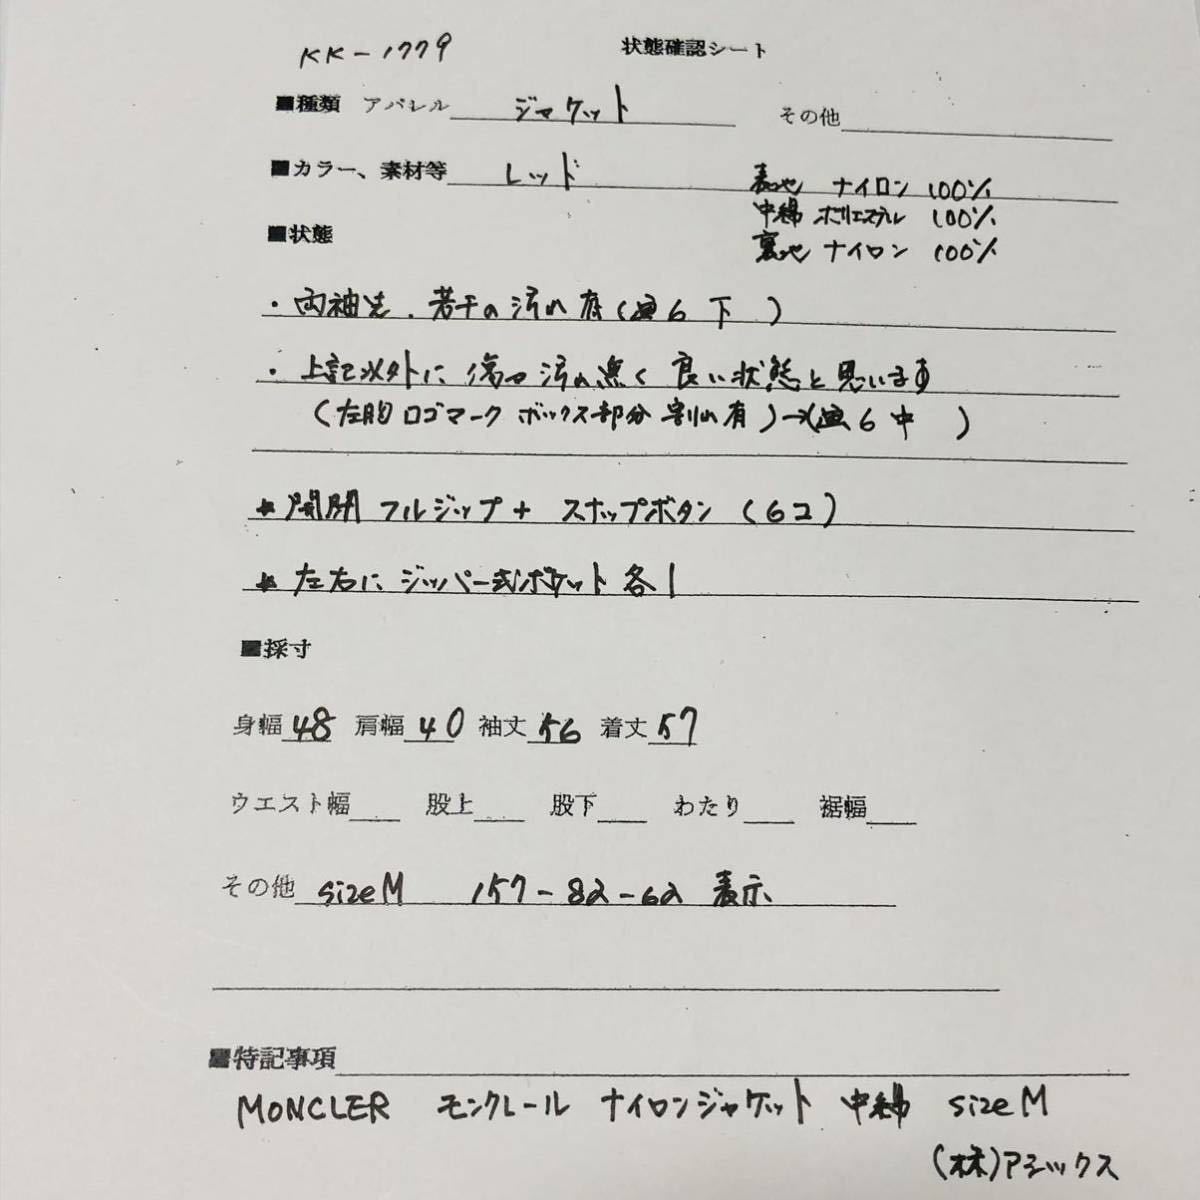 KK-1779 状態確認シート
■種類 アパレル ジャケット その他
■カラー、素材等 レッド 表地 ナイロン 100%
中綿 ポリエステル 100%
■状態
裏地 ナイロン 100%
・両袖先、若干の汚れ有(画6 下 )
・上記以外に傷や汚れ無く良い状態と思います
(左胸ロゴマーク ボックス部分 割れ有)→(画6 中 )
★開閉 フルジップ+ スナップボタン (6コ)
★左右に ジッパー式ポケット 各1
■採寸
身幅 48 肩幅 40 袖丈 56 着丈 57
ウエスト幅 股上 股下 わたり 裾幅
その他 size M 157-82-62 表示
■特記事項
MONCLER モンクレール ナイロンジャケット 中綿 size M
(株)アシックス